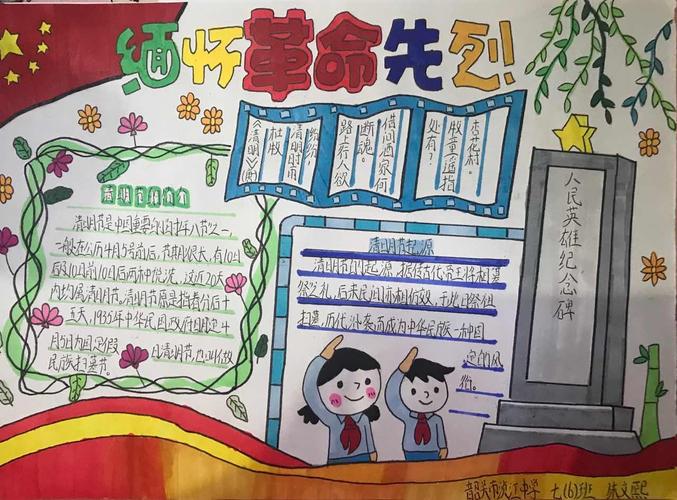 缅怀革命先烈!
《清明》(唐)
杜牧
清明时雨
纷纷,
路上行人欲
断魂。
借问酒家何
处有?
牧童遥指
杏花村。
清明节是中国重要的传统八节之一,
一般在公历4月5号前后,节期很长,有10日
10日前10日后两种说法,这近20天
内均属清明节。清明节原是指春分后十
五天,1935年中华民国政府明定4
月5日为国定假日清明节,也叫做
民族扫墓节。
清明节起源
清明节的起源,据传古代帝王将相墓
祭之礼,后来民间亦相仿效,于此日祭祖
扫墓,历代沿袭而成为中华民族一种固
定的风
俗。
人民英雄纪念碑
韶关市浈江中学 七(6)班